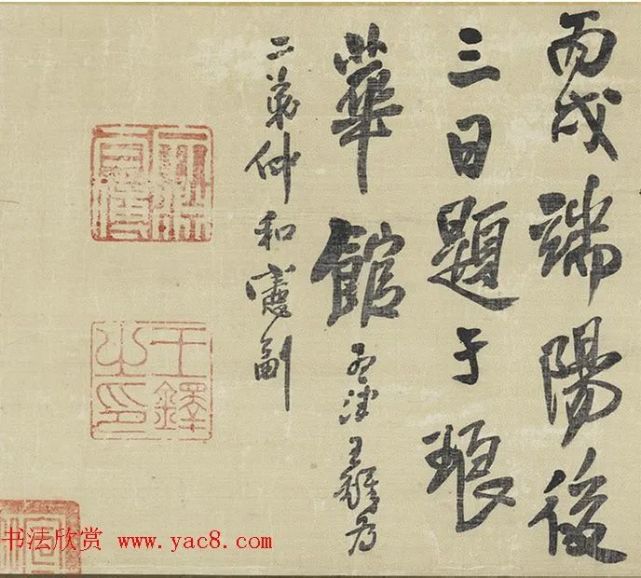 丙戌端陽後
三日題于琅
華館孟津王鐸為
二弟仲和憲副
王鐸之印
书法欣赏 www.yac8.com